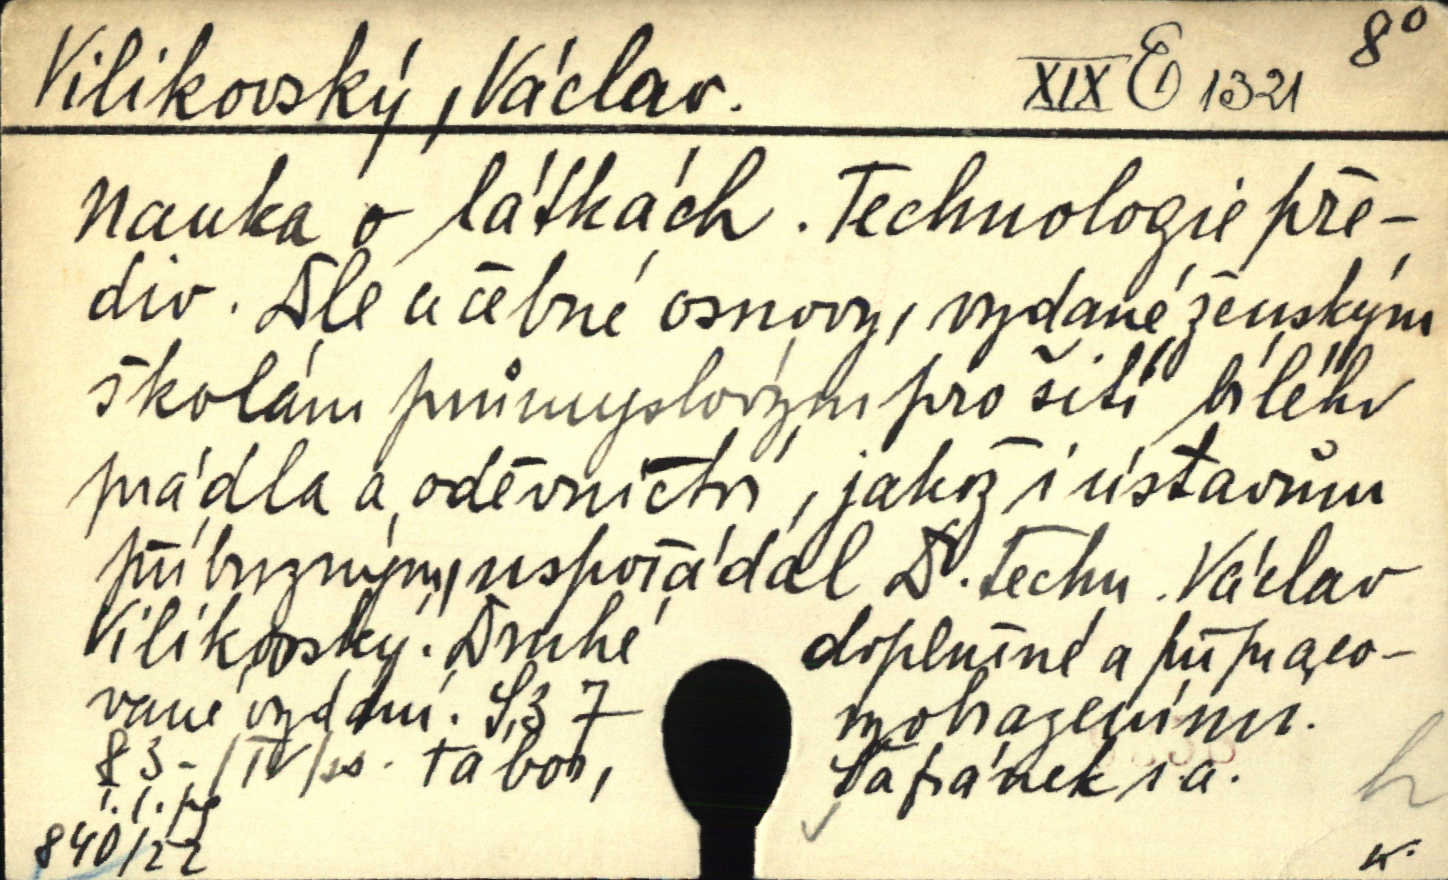 Vilikovský, Václav. XIX E 1321 8°
Nauka o látkách. Technologie pře-
div. Dle učebné osnovy, vydané ženským
školám průmyslovým pro šití bílého
prádla a oděvnictví, jakož i ústavům
příbuzným, uspořádal Dr. techn. Václav
Vilikovský. Druhé doplněné a přípraco-
vané vydání. S 37 vyobrazeními.
83 - /IV/ ss. Tábor, Šafránek s.a.
840/22